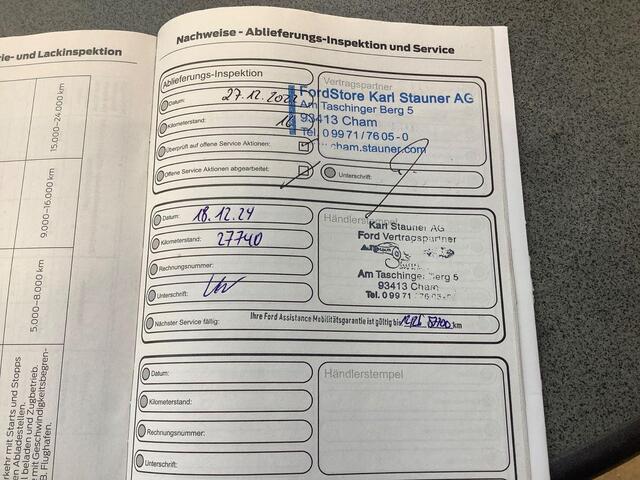 rie- und Lackinspektion
15.000–24.000 km
9.000–16.000 km
5.000–8.000 km
rkehr mit Starts und Stopps
en Abladestellen.
l beladen und Zugbetrieb.
e mit Geschwindigkeitsbegren-
B. Flughafen.
Nachweise - Ablieferungs-Inspektion und Service
Ablieferungs-Inspektion
Datum: 27.12.
Kilometerstand: 16
Überprüft auf offene Service Aktionen:
Offene Service Aktionen abgearbeitet:
Vertragspartner
FordStore Karl Stauner AG
Am Taschinger Berg 5
93413 Cham
Tel. 0 99 71 / 76 05 - 0
cham.stauner.com
Unterschrift:
Datum: 18.12.24
Kilometerstand: 27740
Rechnungsnummer:
Unterschrift:
Händlerstempel
Karl Stauner AG
Ford Vertragspartner
Am Taschinger Berg 5
93413 Cham
Tel. 0 99 71 / 76 05 -
Nächster Service fällig: Ihre Ford Assistance Mobilitätsgarantie ist gültig bis 12/26 57700 km
Datum:
Kilometerstand:
Rechnungsnummer:
Unterschrift:
Händlerstempel